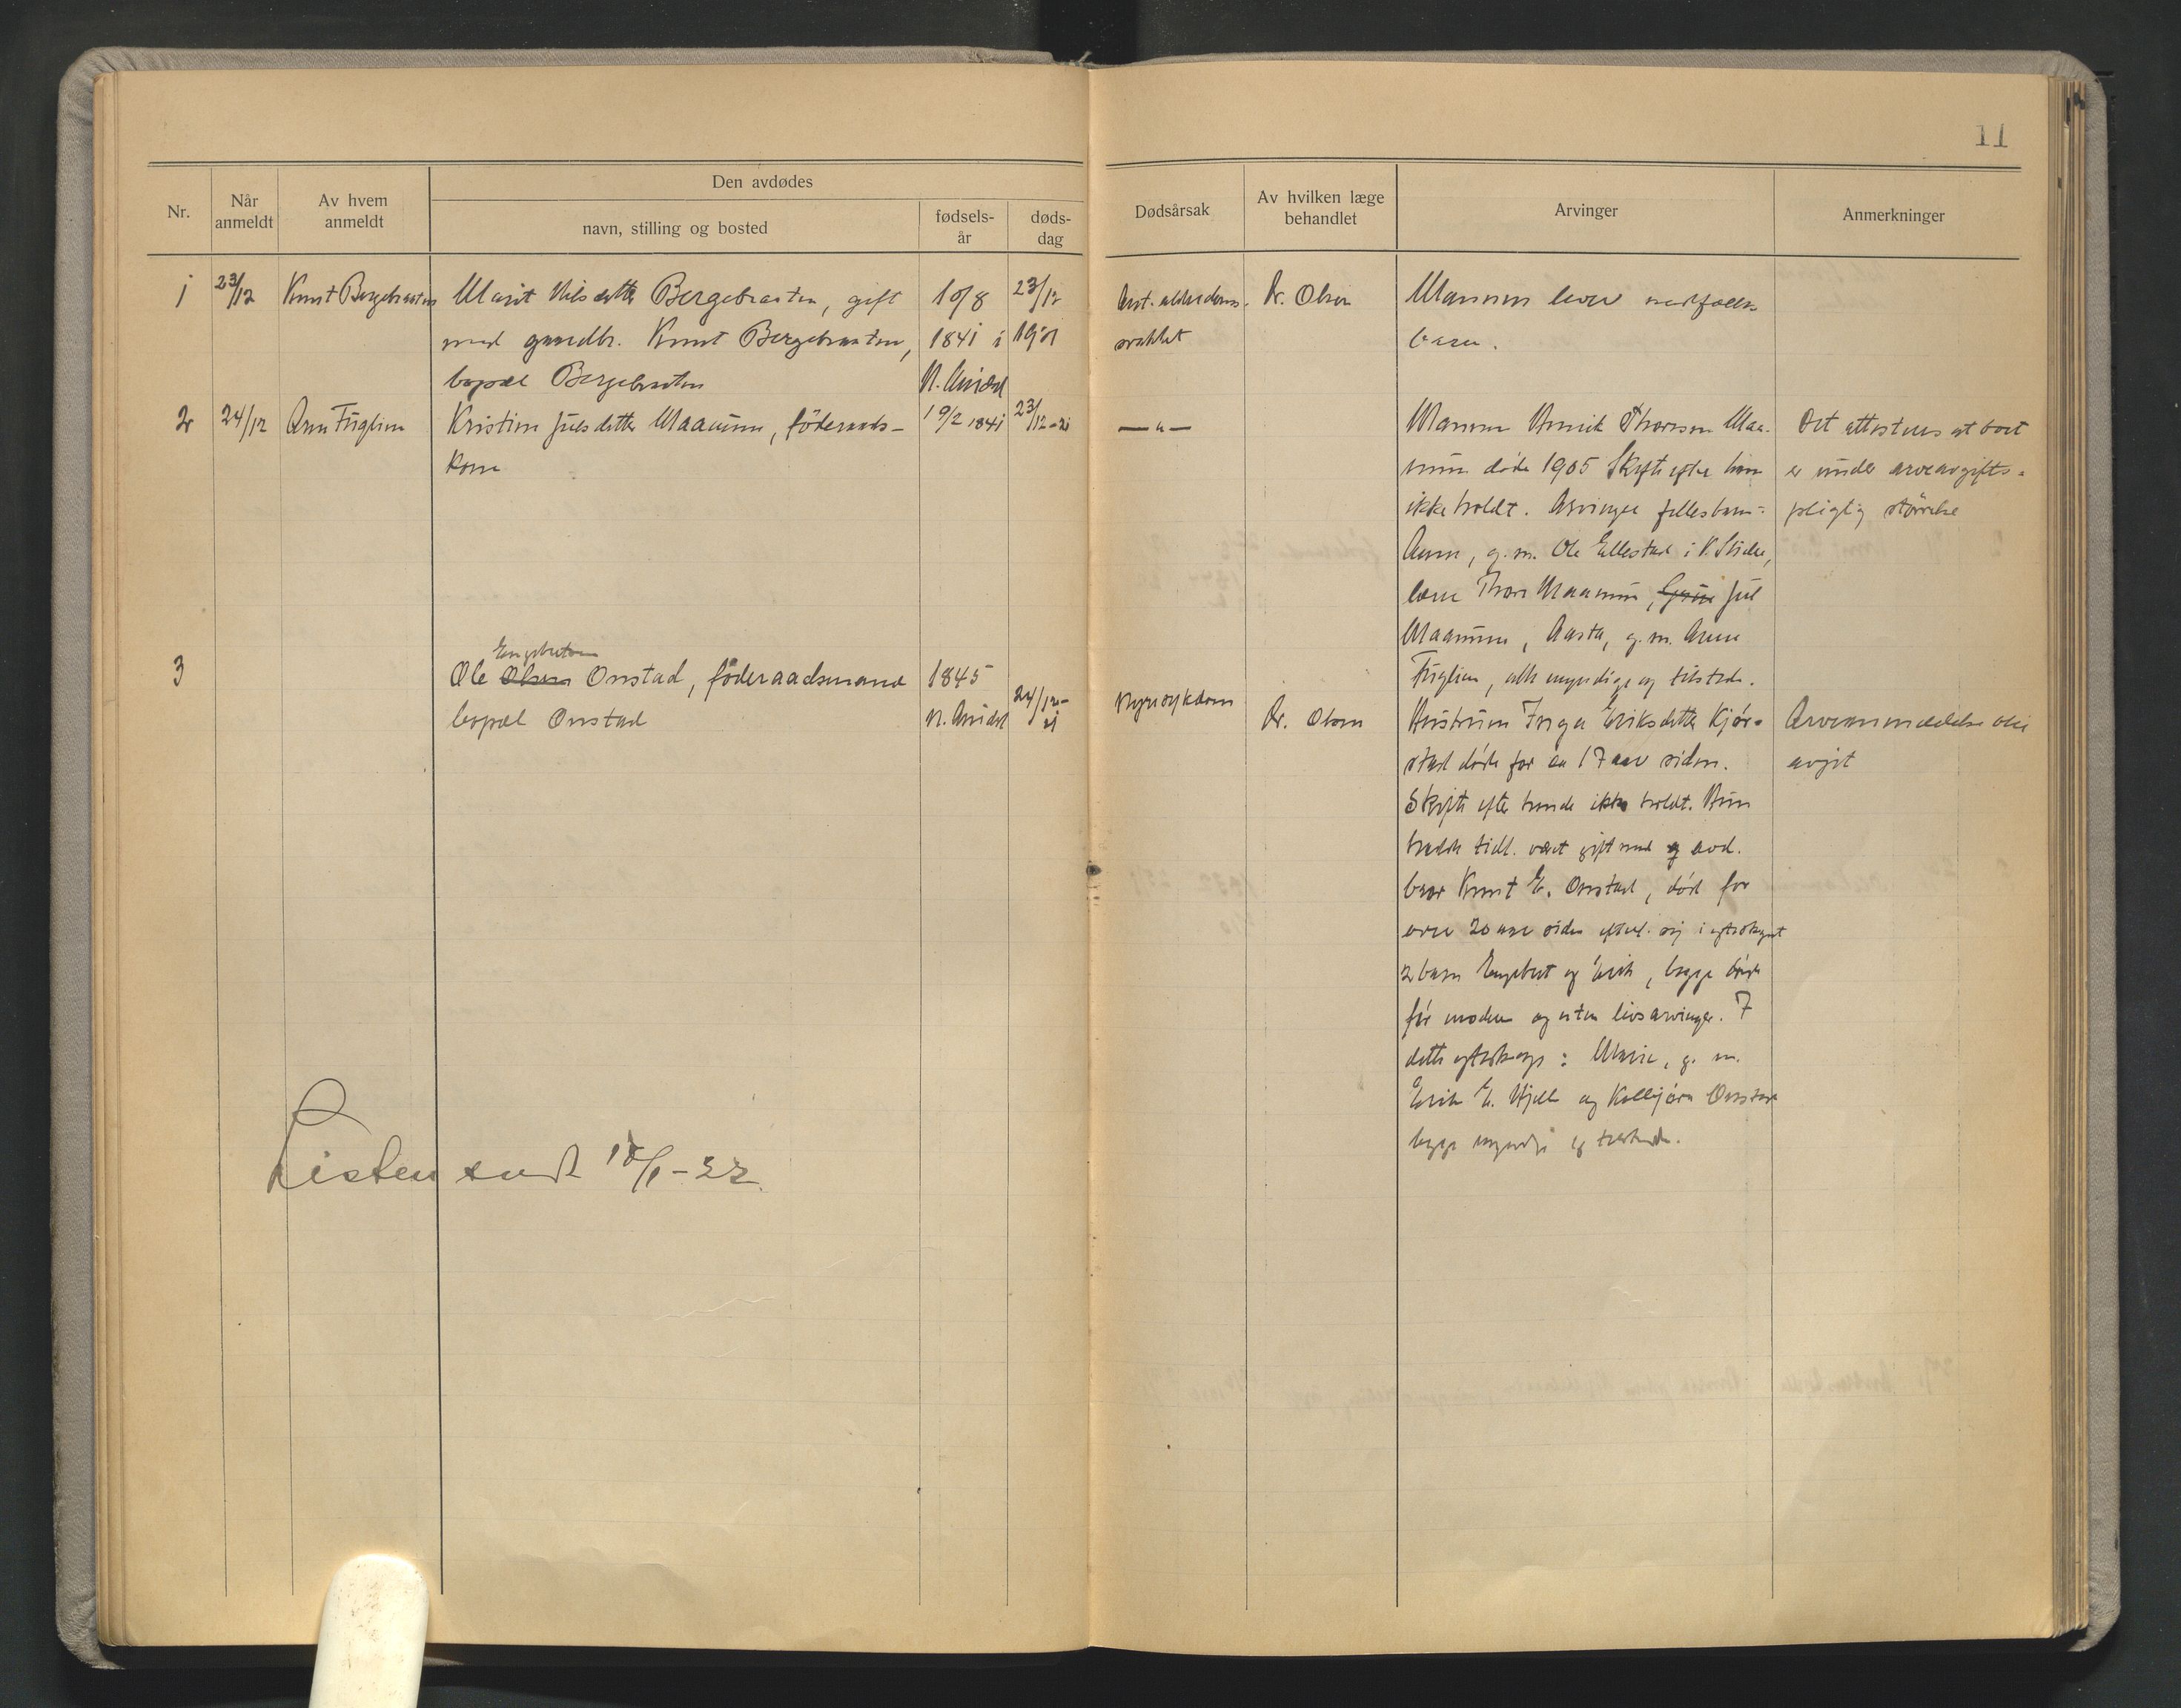 11
Nr.
Når anmeldt
Av hvem anmeldt
Den avdødes
navn, stilling og bosted
fødsels-
år
døds-
dag
Dødsårsak
Av hvilken læge
behandlet
Arvinger
Anmerkninger
1 23/12 Knut Bergebraaten Marit Nilsdatter Bergebraaten, gift 10/8 23/12
med gaardbr. Knut Bergebraaten, 1841 i 1921
bopæl Bergebraaten N. Aurdal
alderdoms-
svakhet
Dr. Olsen
Mannen lever
barn.
2 24/12 Arne Fuglien Kristine Julsdatter Maanum, föderaads- 19/2 1841 23/12-21
kone
— „ —
Mannen Henrik Thoresen Maa-
num døde 1905 Skifte efter ham
ikke holdt. Arvinger fellesbarn:
Anne, g.m. Ole Ellestad i V. Slidre,
Thore Maanum, Jul
Maanum, Aasta, g.m. Arne
Fuglien, alle myndige og tilstede.
Det attesteres at boet
er under arveavgifts-
pligtig størrelse
3 Ole Olsen Engebretsen Onstad, föderaadsmand 1845 24/12-21
bopæl Onstad N. Aurdal
Nyresykdom
Dr. Olsen
Hustruen Inga Eriksdatter Kjør-
stad døde for ca 17 aar siden.
Skifte efter hende ikke holdt. Hun
hadde tidl. vært gift med avd.
bror Knut E. Onstad, død for
over 20 aar siden efterl. sig i egteskapet
2 barn Engebret og Erik, begge døde
før moderen og uten livsarvinger. I
dette egteskap: Marie, g. m.
Erik E. Hjelle og Kolbjørn Onstad
begge myndige og tilstede.
Arveanmeldelse blir
avgit
Listen sendt 18/1-22.